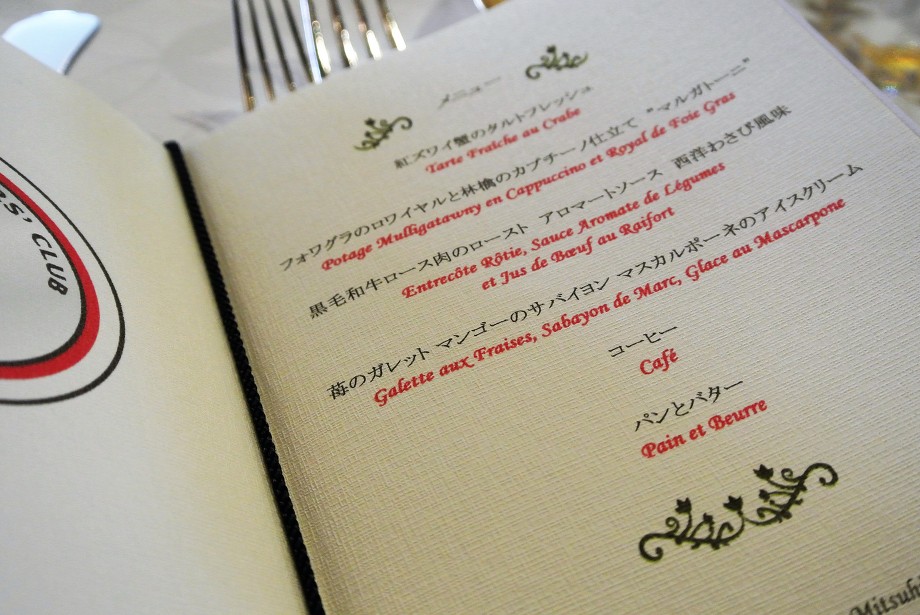 S' CLUB
メニュー
紅ズワイ蟹のタルトフレッシュ
Tarte Fraîche au Crabe
フォワグラのロワイヤルと林檎のカプチーノ仕立て “マルガトーニ”
Potage Mulligatawny en Cappuccino et Royal de Foie Gras
黒毛和牛ロース肉のロースト アロマートソース 西洋わさび風味
Entrecôte Rôtie, Sauce Aromate de Légumes
et Jus de Bœuf au Raifort
苺のガレット マンゴーのサバイヨン マスカルポーネのアイスクリーム
Galette aux Fraises, Sabayon de Marc, Glace au Mascarpone
コーヒー
Café
パンとバター
Pain et Beurre